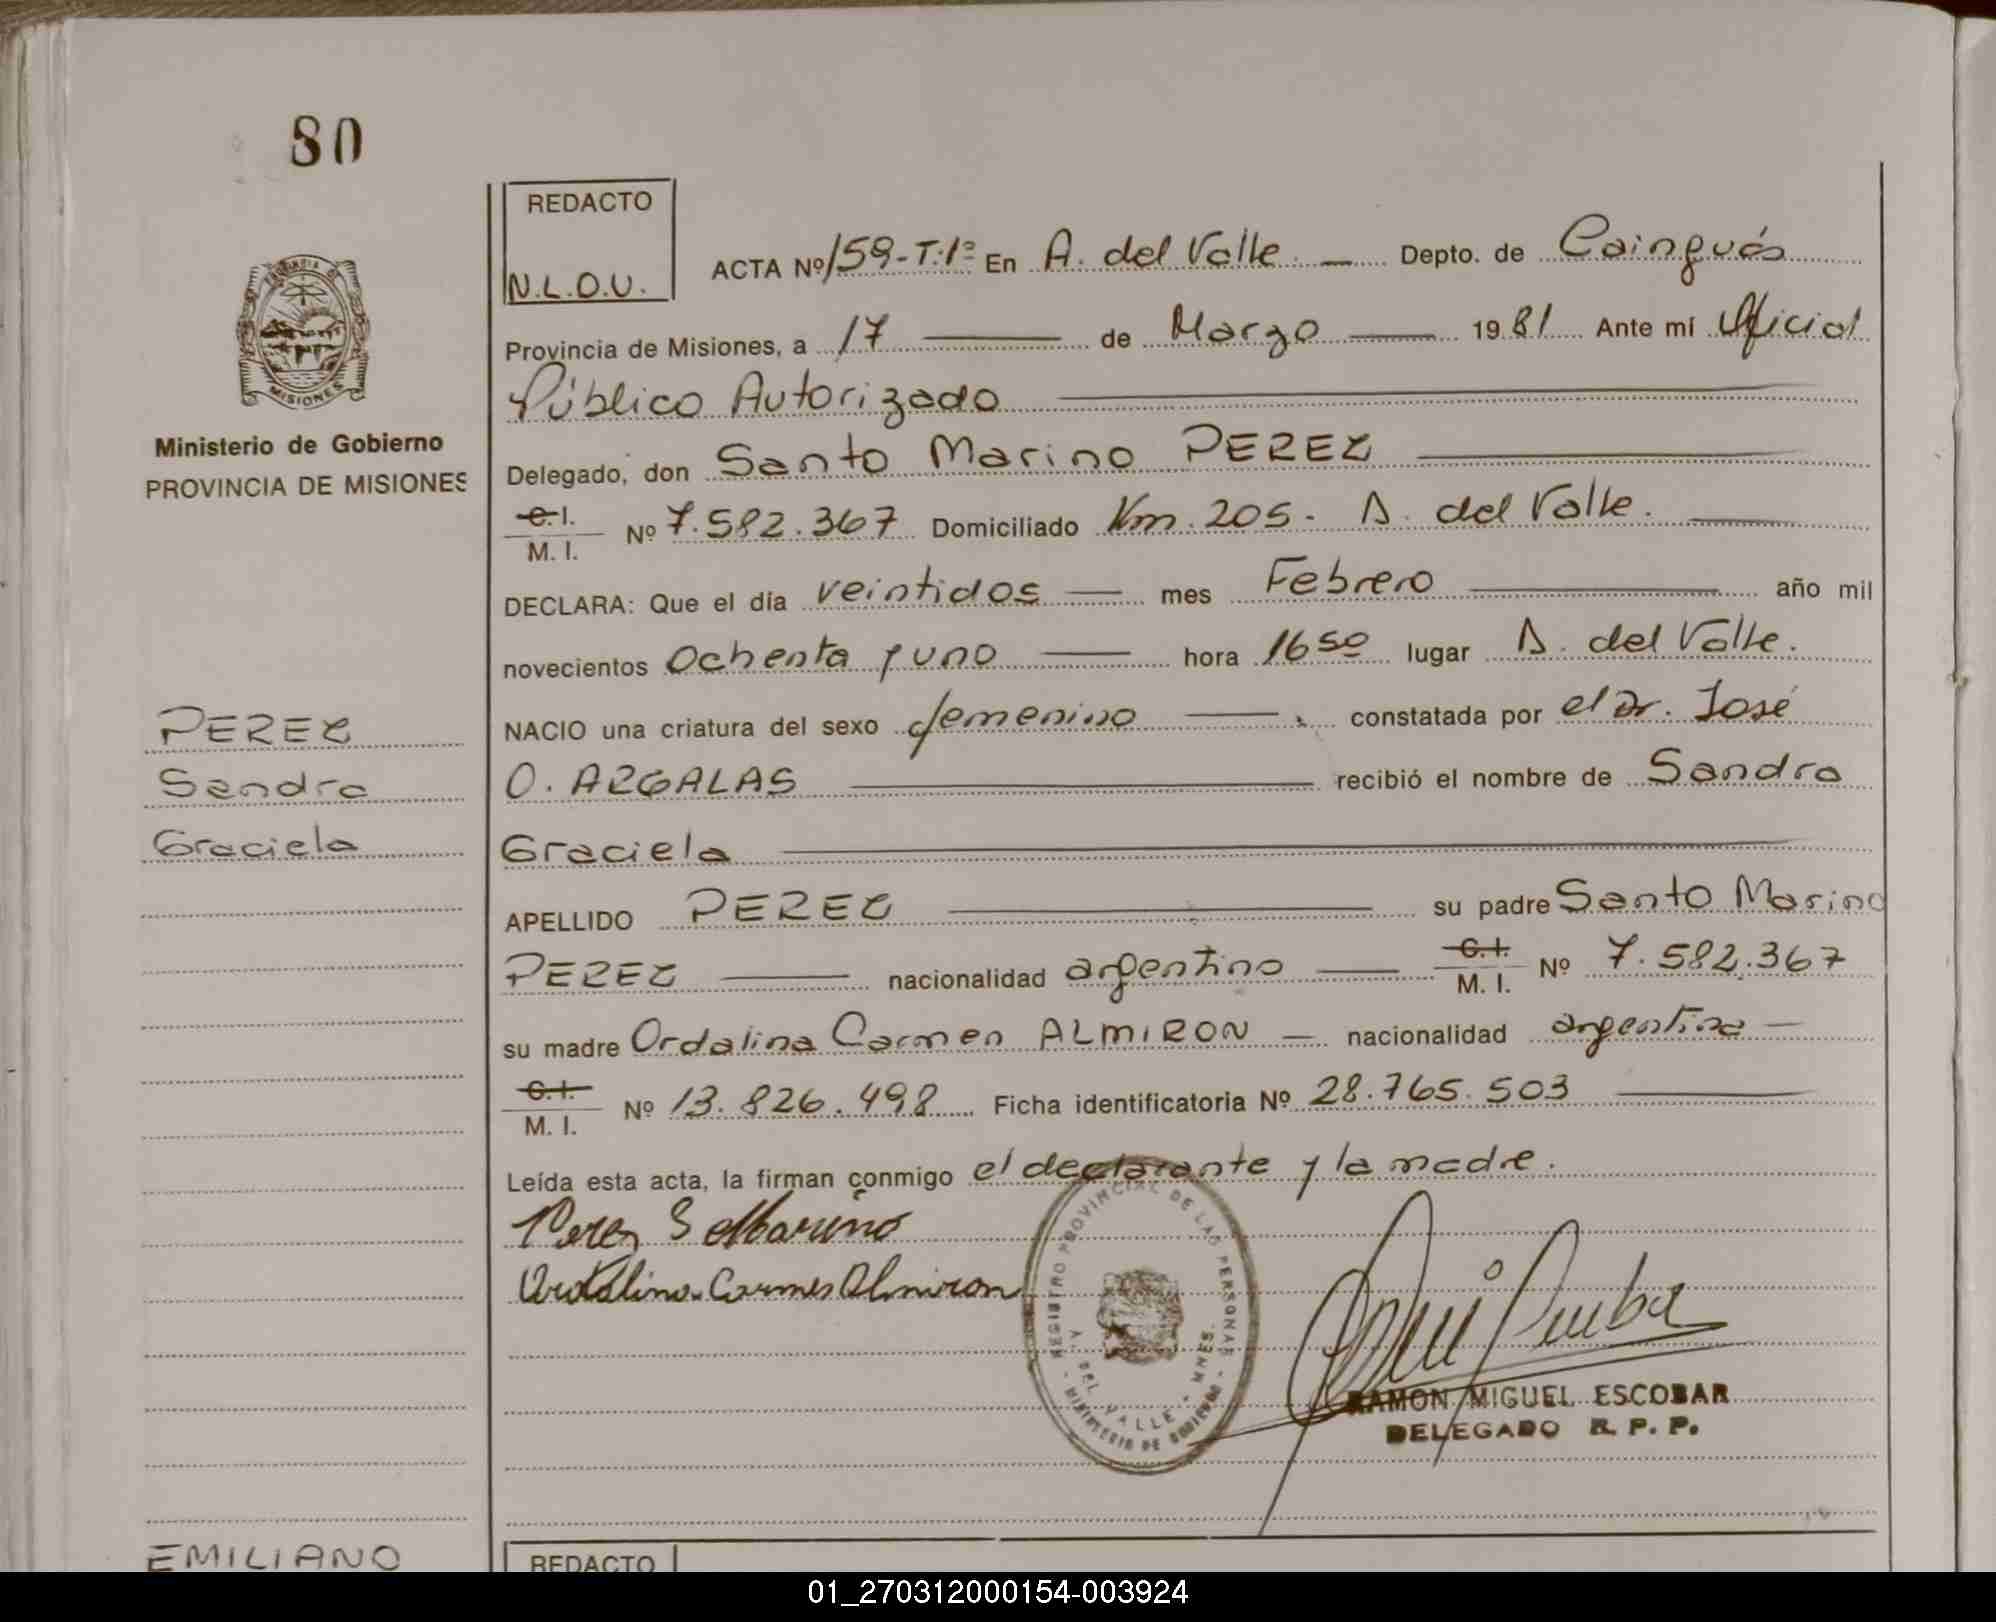 80
REDACTO
N.L.O.U.
PROVINCIA D
MISIONES
Ministerio de Gobierno
PROVINCIA DE MISIONES
ACTA Nº 159-T:1º En A. del Valle. — Depto. de Cainguás
Provincia de Misiones, a 17 — de Marzo — 1981 Ante mí Oficial
Público Autorizado
Delegado, don Santo Marino PEREZ
C. I. M. I. Nº 7.582.367 Domiciliado Km. 205. A. del Valle.
DECLARA: Que el día veintidos — mes Febrero — año mil
novecientos Ochenta y uno — hora 16 50 lugar A. del Valle.
NACIO una criatura del sexo femenino — constatada por el Dr. José
O. ARGALAS — recibió el nombre de Sandra
Graciela
APELLIDO PEREZ — su padre Santo Marino
PEREZ — nacionalidad argentino — C. I. M. I. Nº 7.582.367
su madre Ordalina Carmen ALMIRON — nacionalidad argentina —
C. I. M. I. Nº 13.826.498 Ficha identificatoria Nº 28.765.503
Leída esta acta, la firman conmigo el declarante y la madre.
Perez S Marino
Ordalina Carmen Almiron
PEREZ
Sandra
Graciela
REGISTRO PROVINCIAL DE LAS PERSONAS
A. DEL VALLE - MNES.
- MINISTERIO DE GOBIERNO -
RAMON MIGUEL ESCOBAR
DELEGADO R. P. P.
EMILIANO
REDACTO
01_270312000154-003924